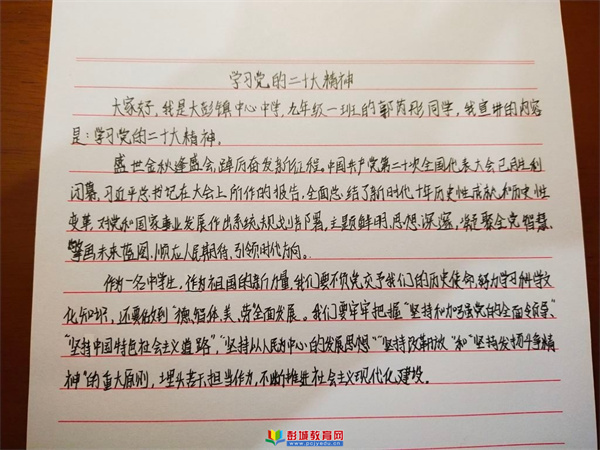 学习党的二十大精神
大家好,我是大彭镇中心中学,九年级一班的郭芮彤同学,我宣讲的内容
是:学习党的二十大精神。
盛世金秋逢盛会,踔厉奋发新征程。中国共产党第二十次全国代表大会已胜利
闭幕,习近平总书记在大会上所作的报告,全面总结了新时代十年历史性成就和历史性
变革,对党和国家事业发展作出系统规划部署,主题鲜明、思想深邃,凝聚全党智慧、
擘画未来蓝图、顺应人民期待、引领时代方向。
作为一名中学生,作为祖国的新力量,我们要不负党交予我们的历史使命,努力学习科学文
化知识,还要做到“德、智、体、美、劳”全面发展。我们要牢牢把握“坚持和加强党的全面领导”
“坚持中国特色社会主义道路”,“坚持以人民为中心的发展思想”“坚持改革开放”和“坚持发扬斗争精
神”的重大原则,埋头苦干,担当作为,不断推进社会主义现代化建设。
彭城教育网
www.pcjyedu.cn